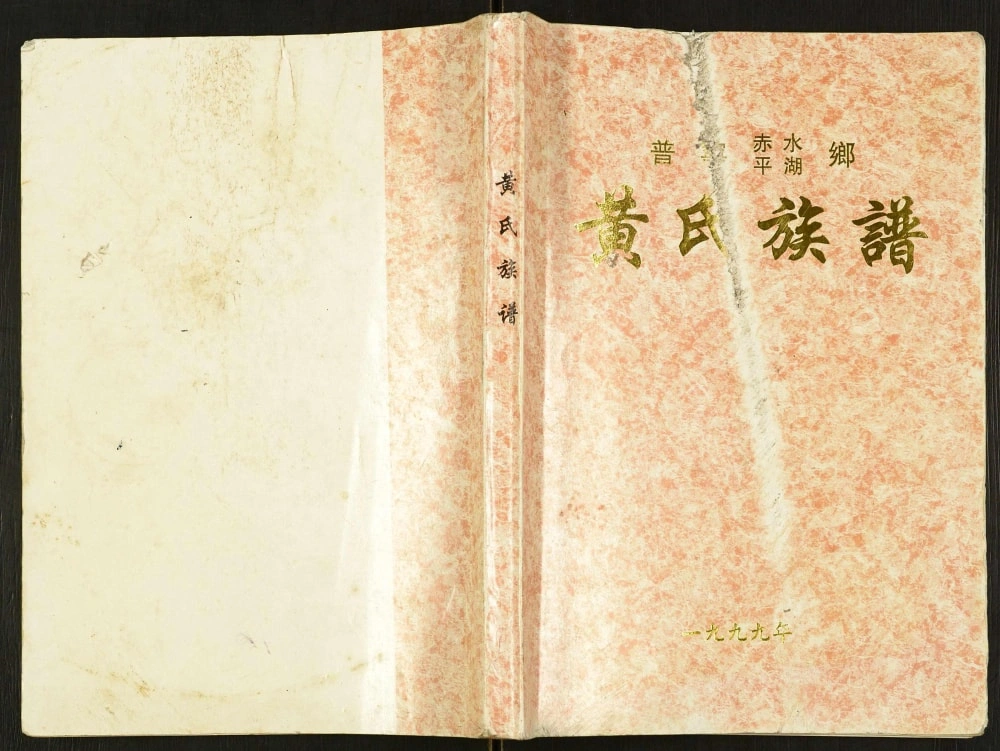 黄氏族谱
普 赤水 鄉
平湖
黄氏族譜
一九九九年